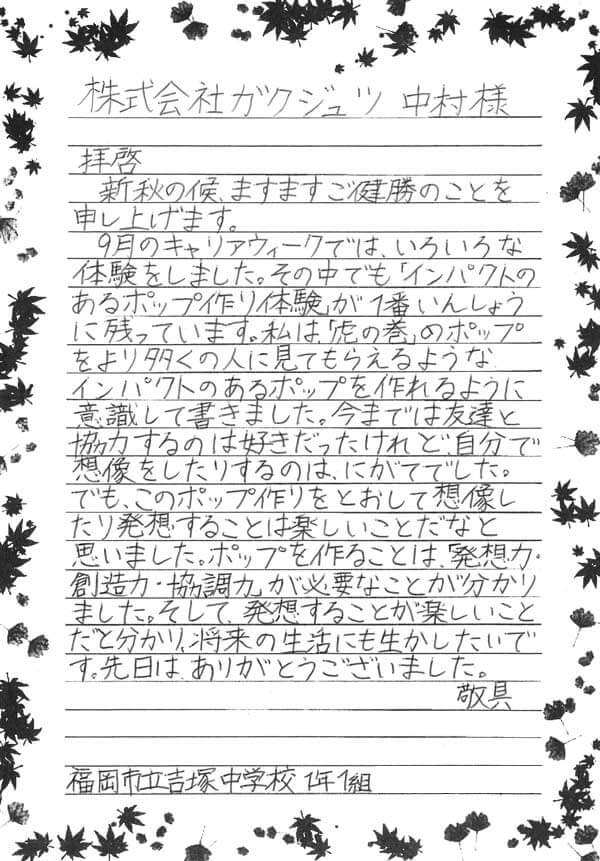 株式会社ガクジュツ 中村様
拝啓
新秋の候、ますますご健勝のことを
申し上げます。
9月のキャリアウィークでは、いろいろな
体験をしました。その中でも「インパクトの
あるポップ作り体験」が1番いんしょう
に残っています。私は「虎の巻」のポップ
をより多くの人に見てもらえるような
インパクトのあるポップを作れるように
意識して書きました。今までは友達と
協力するのは好きだったけれど、自分で
想像をしたりするのは、にがてでした。
でも、このポップ作りをとおして想像し
たり発想することは楽しいことだなと
思いました。ポップを作ることは、「発想力・
創造力・協調力」が必要なことが分かり
ました。そして、発想することが楽しいこと
だと分かり、将来の生活にも生かしたいで
す。先日は、ありがとうございました。
敬具
福岡市立吉塚中学校 1年1組